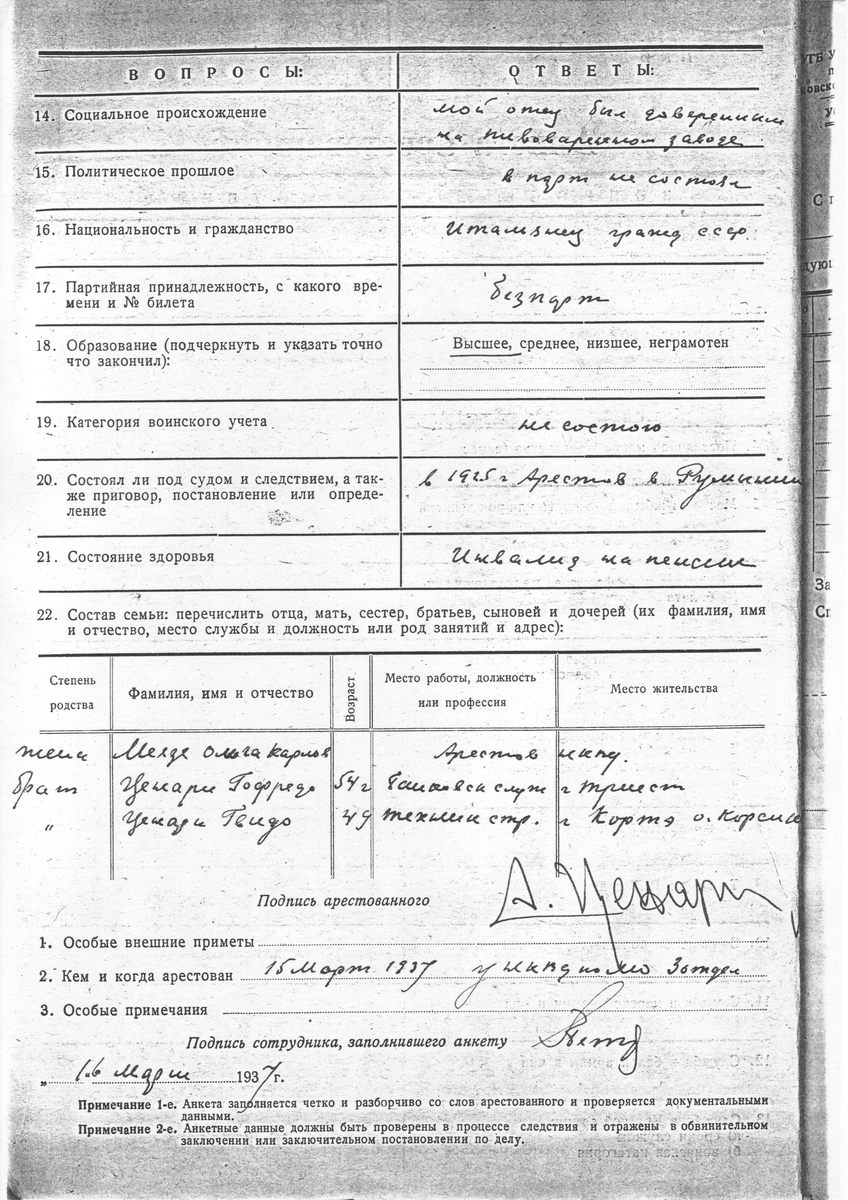 ВОПРОСЫ: ОТВЕТЫ:
14. Социальное происхождение мой отец был доверенным
на пивоваренном заводе
15. Политическое прошлое в парт не состоял
16. Национальность и гражданство Итальянец гражд ссср
17. Партийная принадлежность, с какого вре-
мени и № билета безпарт
18. Образование (подчеркнуть и указать точно Высшее, среднее, низшее, неграмотен
что закончил):
19. Категория воинского учета не состою
20. Состоял ли под судом и следствием, а так- в 1925 г Арестов в Румынии
же приговор, постановление или опреде-
ление
21. Состояние здоровья Инвалид на пенсии
22. Состав семьи: перечислить отца, мать, сестер, братьев, сыновей и дочерей (их фамилия, имя
и отчество, место службы и должность или род занятий и адрес):
Степень родства Фамилия, имя и отчество Возраст Место работы, должность или профессия Место жительства
жена Ольга Карлов Арестов нквд.
брат Ценари Гофредо 54 г служ г Триест
„ Ценари Гвидо 49 техник стр. г Кортэ о. Корсик
Подпись арестованного А. Ценари
1. Особые внешние приметы
2. Кем и когда арестован 15 Март 1937 унквд по мо 3 отдел
3. Особые примечания
Подпись сотрудника, заполнившего анкету
„ 16 март 1937 г.
Примечание 1-е. Анкета заполняется четко и разборчиво со слов арестованного и проверяется документальными
данными.
Примечание 2-е. Анкетные данные должны быть проверены в процессе следствия и отражены в обвинительном
заключении или заключительном постановлении по делу.